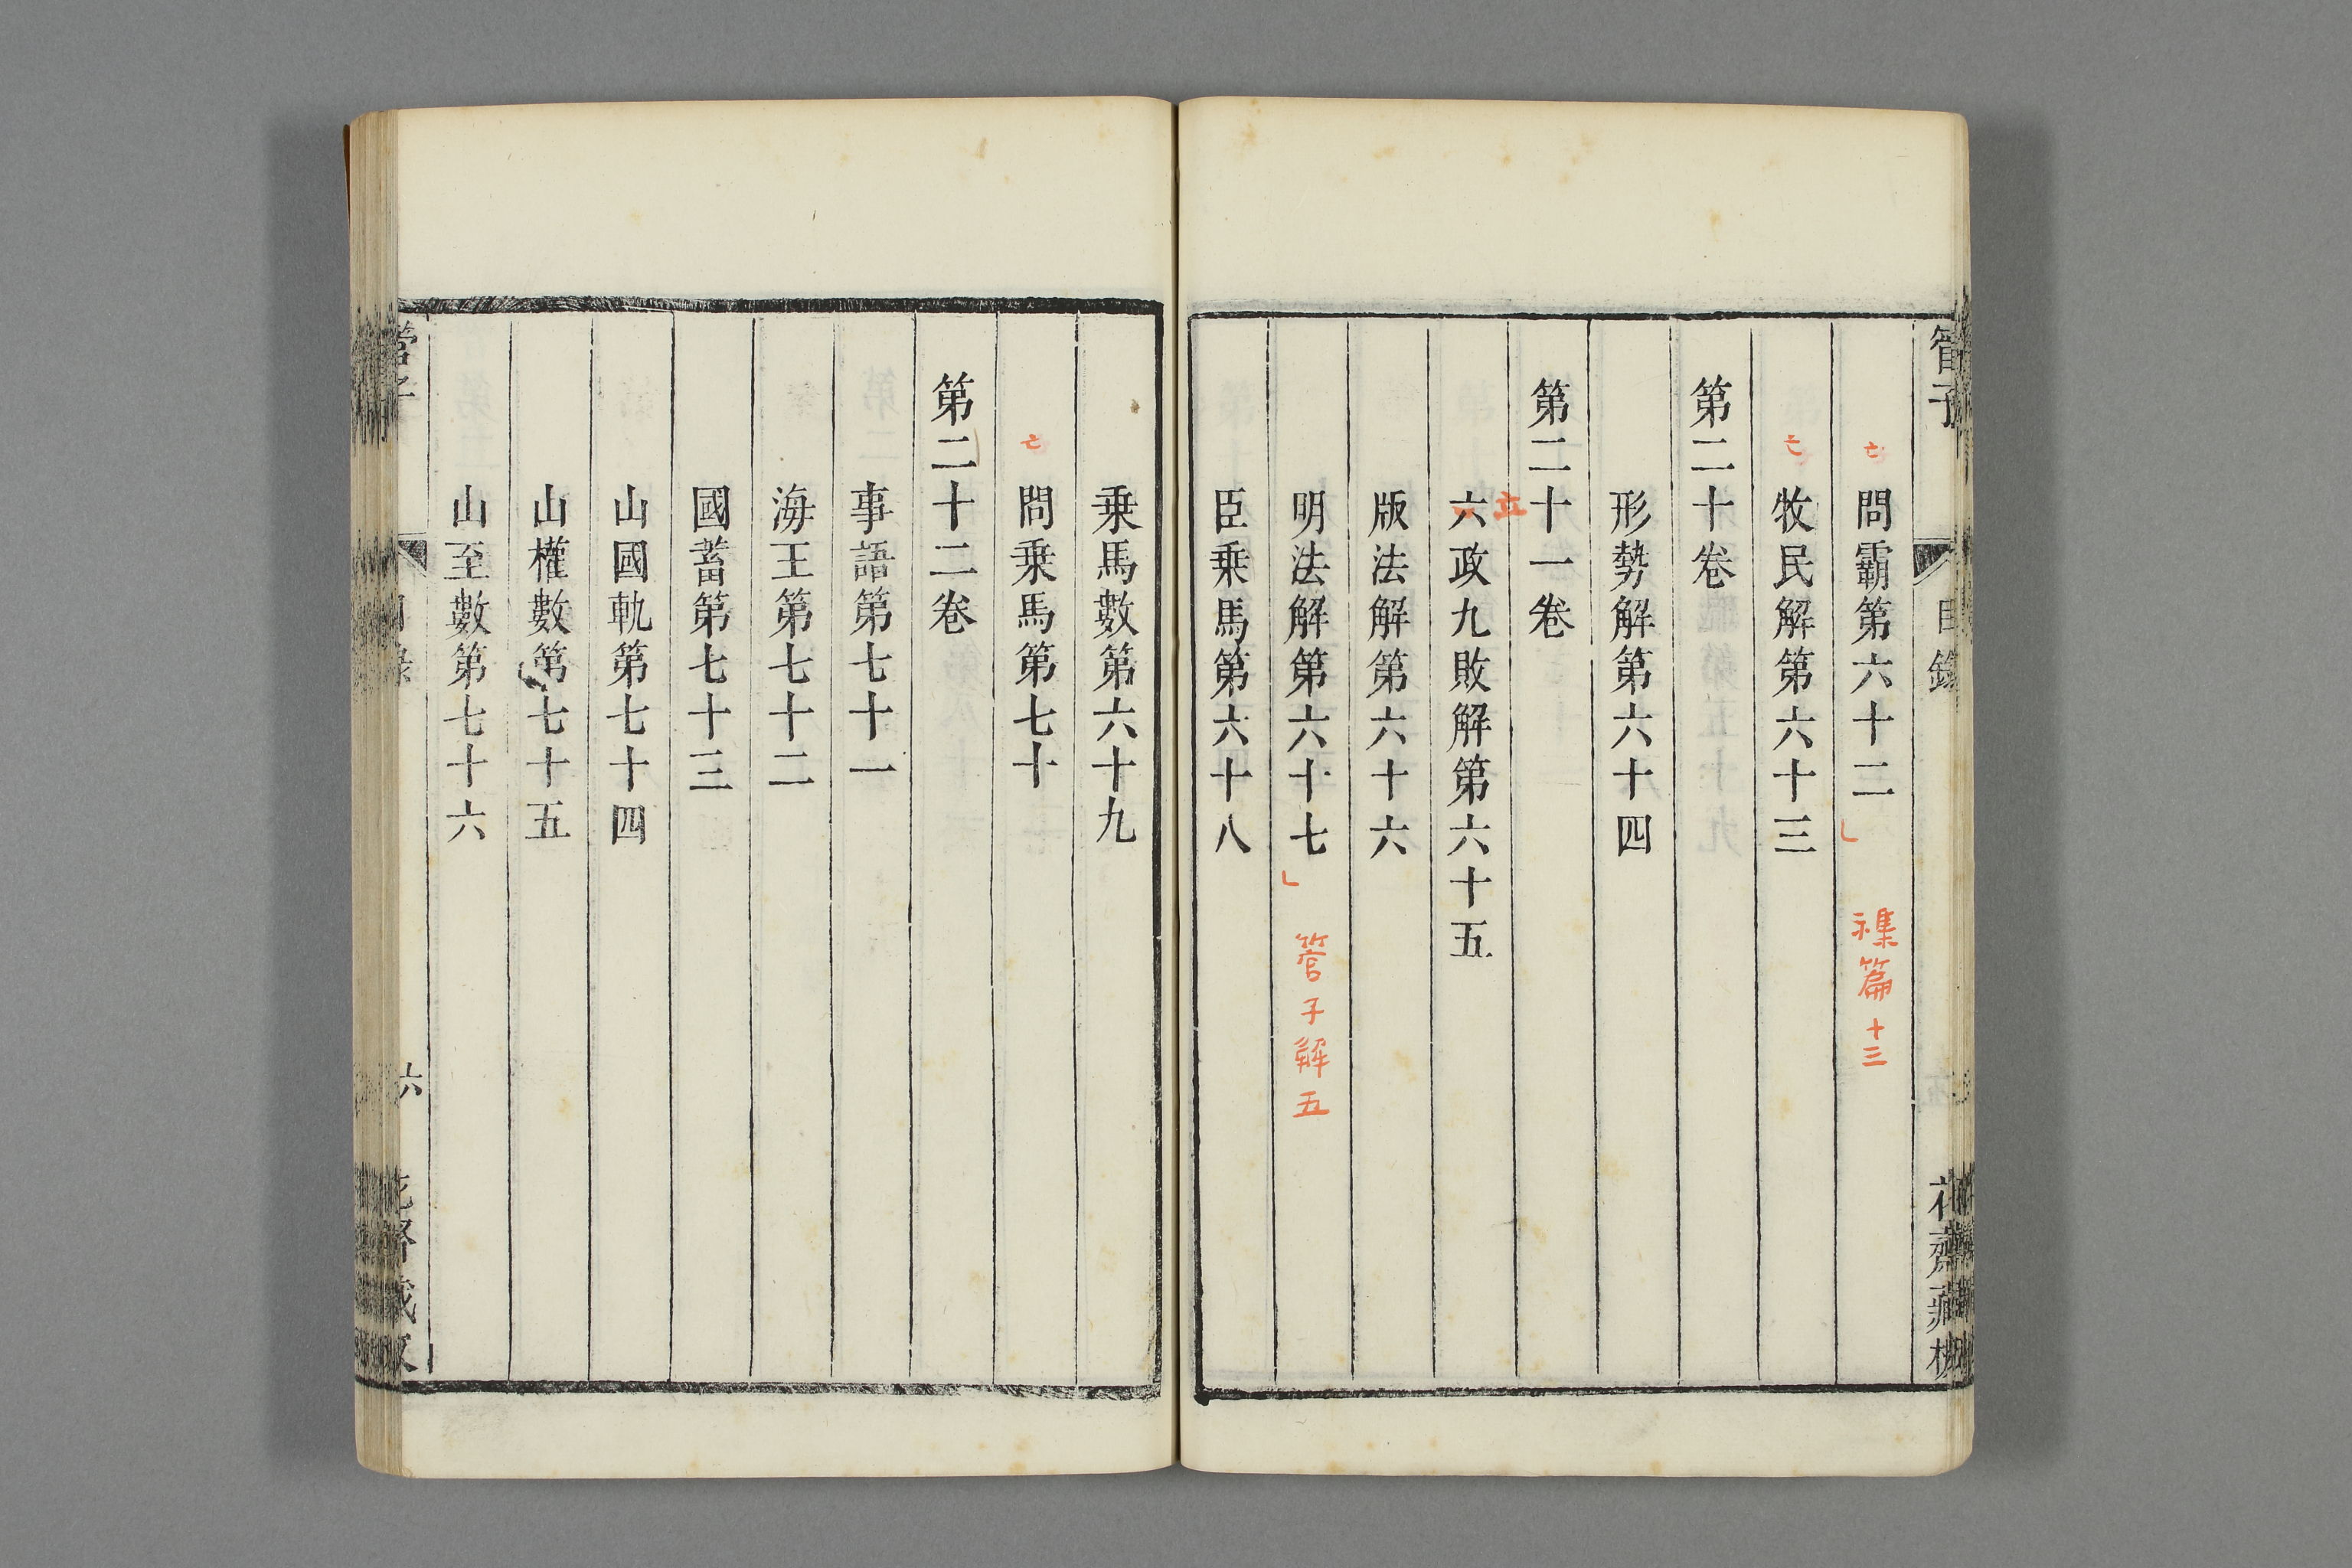 管子 目錄 花齋藏板
亡 問霸第六十二」 襍篇十三
亡 牧民解第六十三
第二十卷
形勢解第六十四
第二十一卷
立
六政九敗解第六十五
版法解第六十六
明法解第六十七」 管子解五
臣乗馬第六十八
乗馬數第六十九
亡 問乗馬第七十
第二十二卷
事語第七十一
海王第七十二
國蓄第七十三
山國軌第七十四
山權數第七十五
山至數第七十六
管子 目錄 六 花齋藏板